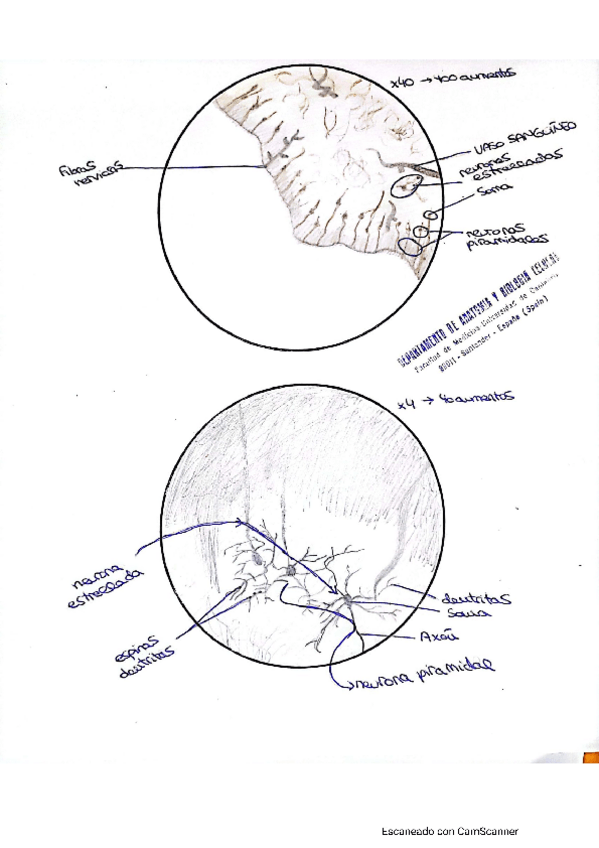 x40 → 400 aumentos
VASO SANGUÍNEO
neuronas
estrelladas
Soma
neuronas
piramidales
fibras
nerviosas
DEPARTAMENTO DE ANATOMIA Y BIOLOGIA CELULAR
Facultad de Medicina Universidad de Cantabria
39011 - Santander - España (Spain)
x4 → 40 aumentos
neurona
estrellada
espinas
dentritas
dentritas
Soma
Axón
neurona piramidal
Escaneado con CamScanner